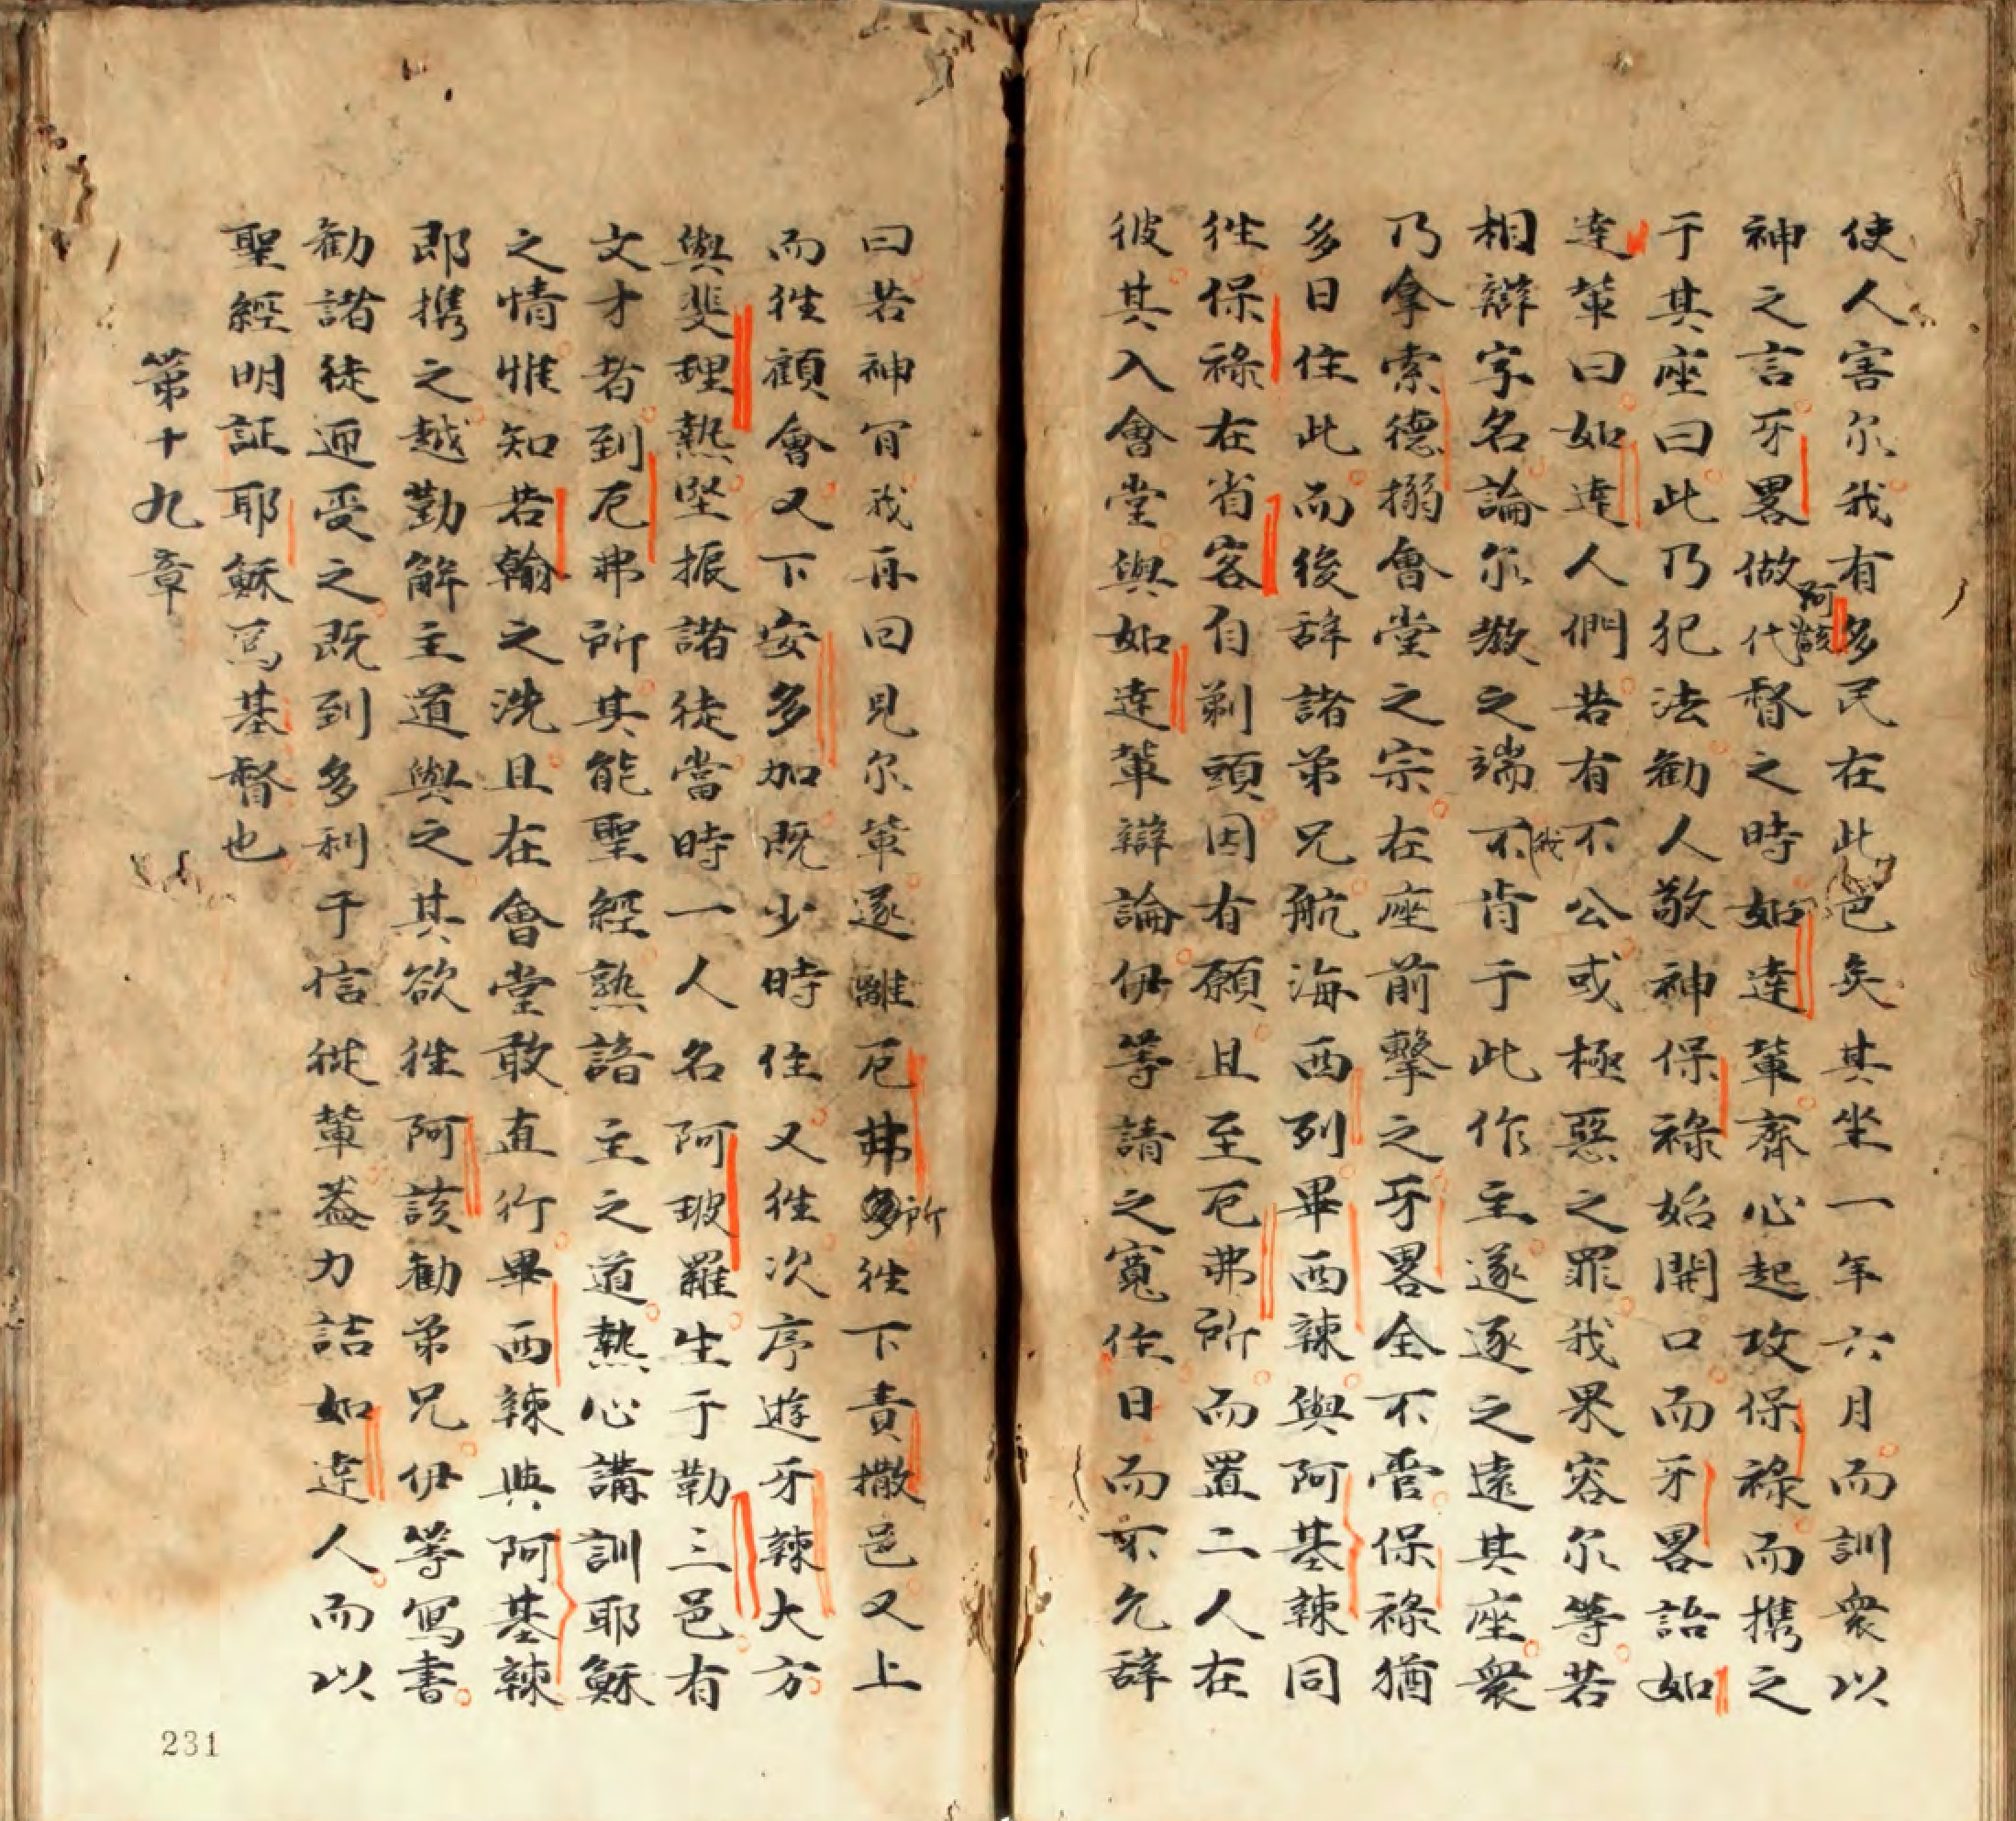 使人害尔我有多民在此邑矣其坐一年六月而訓衆以
神之言牙畧做阿該代督之時如達軰齊心起攻保祿而携之
于其座曰此乃犯法勸人敬神保祿始開口而牙畧語如
達軰曰如達人們若有不公或極惡之罪我果容尔等若
相辯字名論尔教之端我不肯于此作主遂逐之遠其座衆
乃拿索德搦會堂之宗在座前擊之牙畧全不管保祿猶
多日住此而後辞諸弟兄航海西列畢西辣與阿基辣同
徃保祿在省客自剃頭因有願且至厄弗所而置二人在
彼其入會堂與如達軰辯論伊等請之寬住日而不允辞
曰若神肯我再回見尔軰遂離厄弗所徃下責撒邑又上
而徃顧會又下安多加既少時住又徃次序遊牙辣大方
與斐理熱堅振諸徒當時一人名阿玻羅生于勒三邑有
文才者到厄弗所其能聖經熟諳主之道熱心講訓耶穌
之情惟知若翰之洗且在會堂敢直行畢西辣與阿基辣
即携之越勤解主道與之其欲徃阿該勸弟兄伊等寫書
勸諸徒迊受之既到多利于信徒軰葢力詰如達人而以
聖經明証耶穌為基督也
第十九章
231